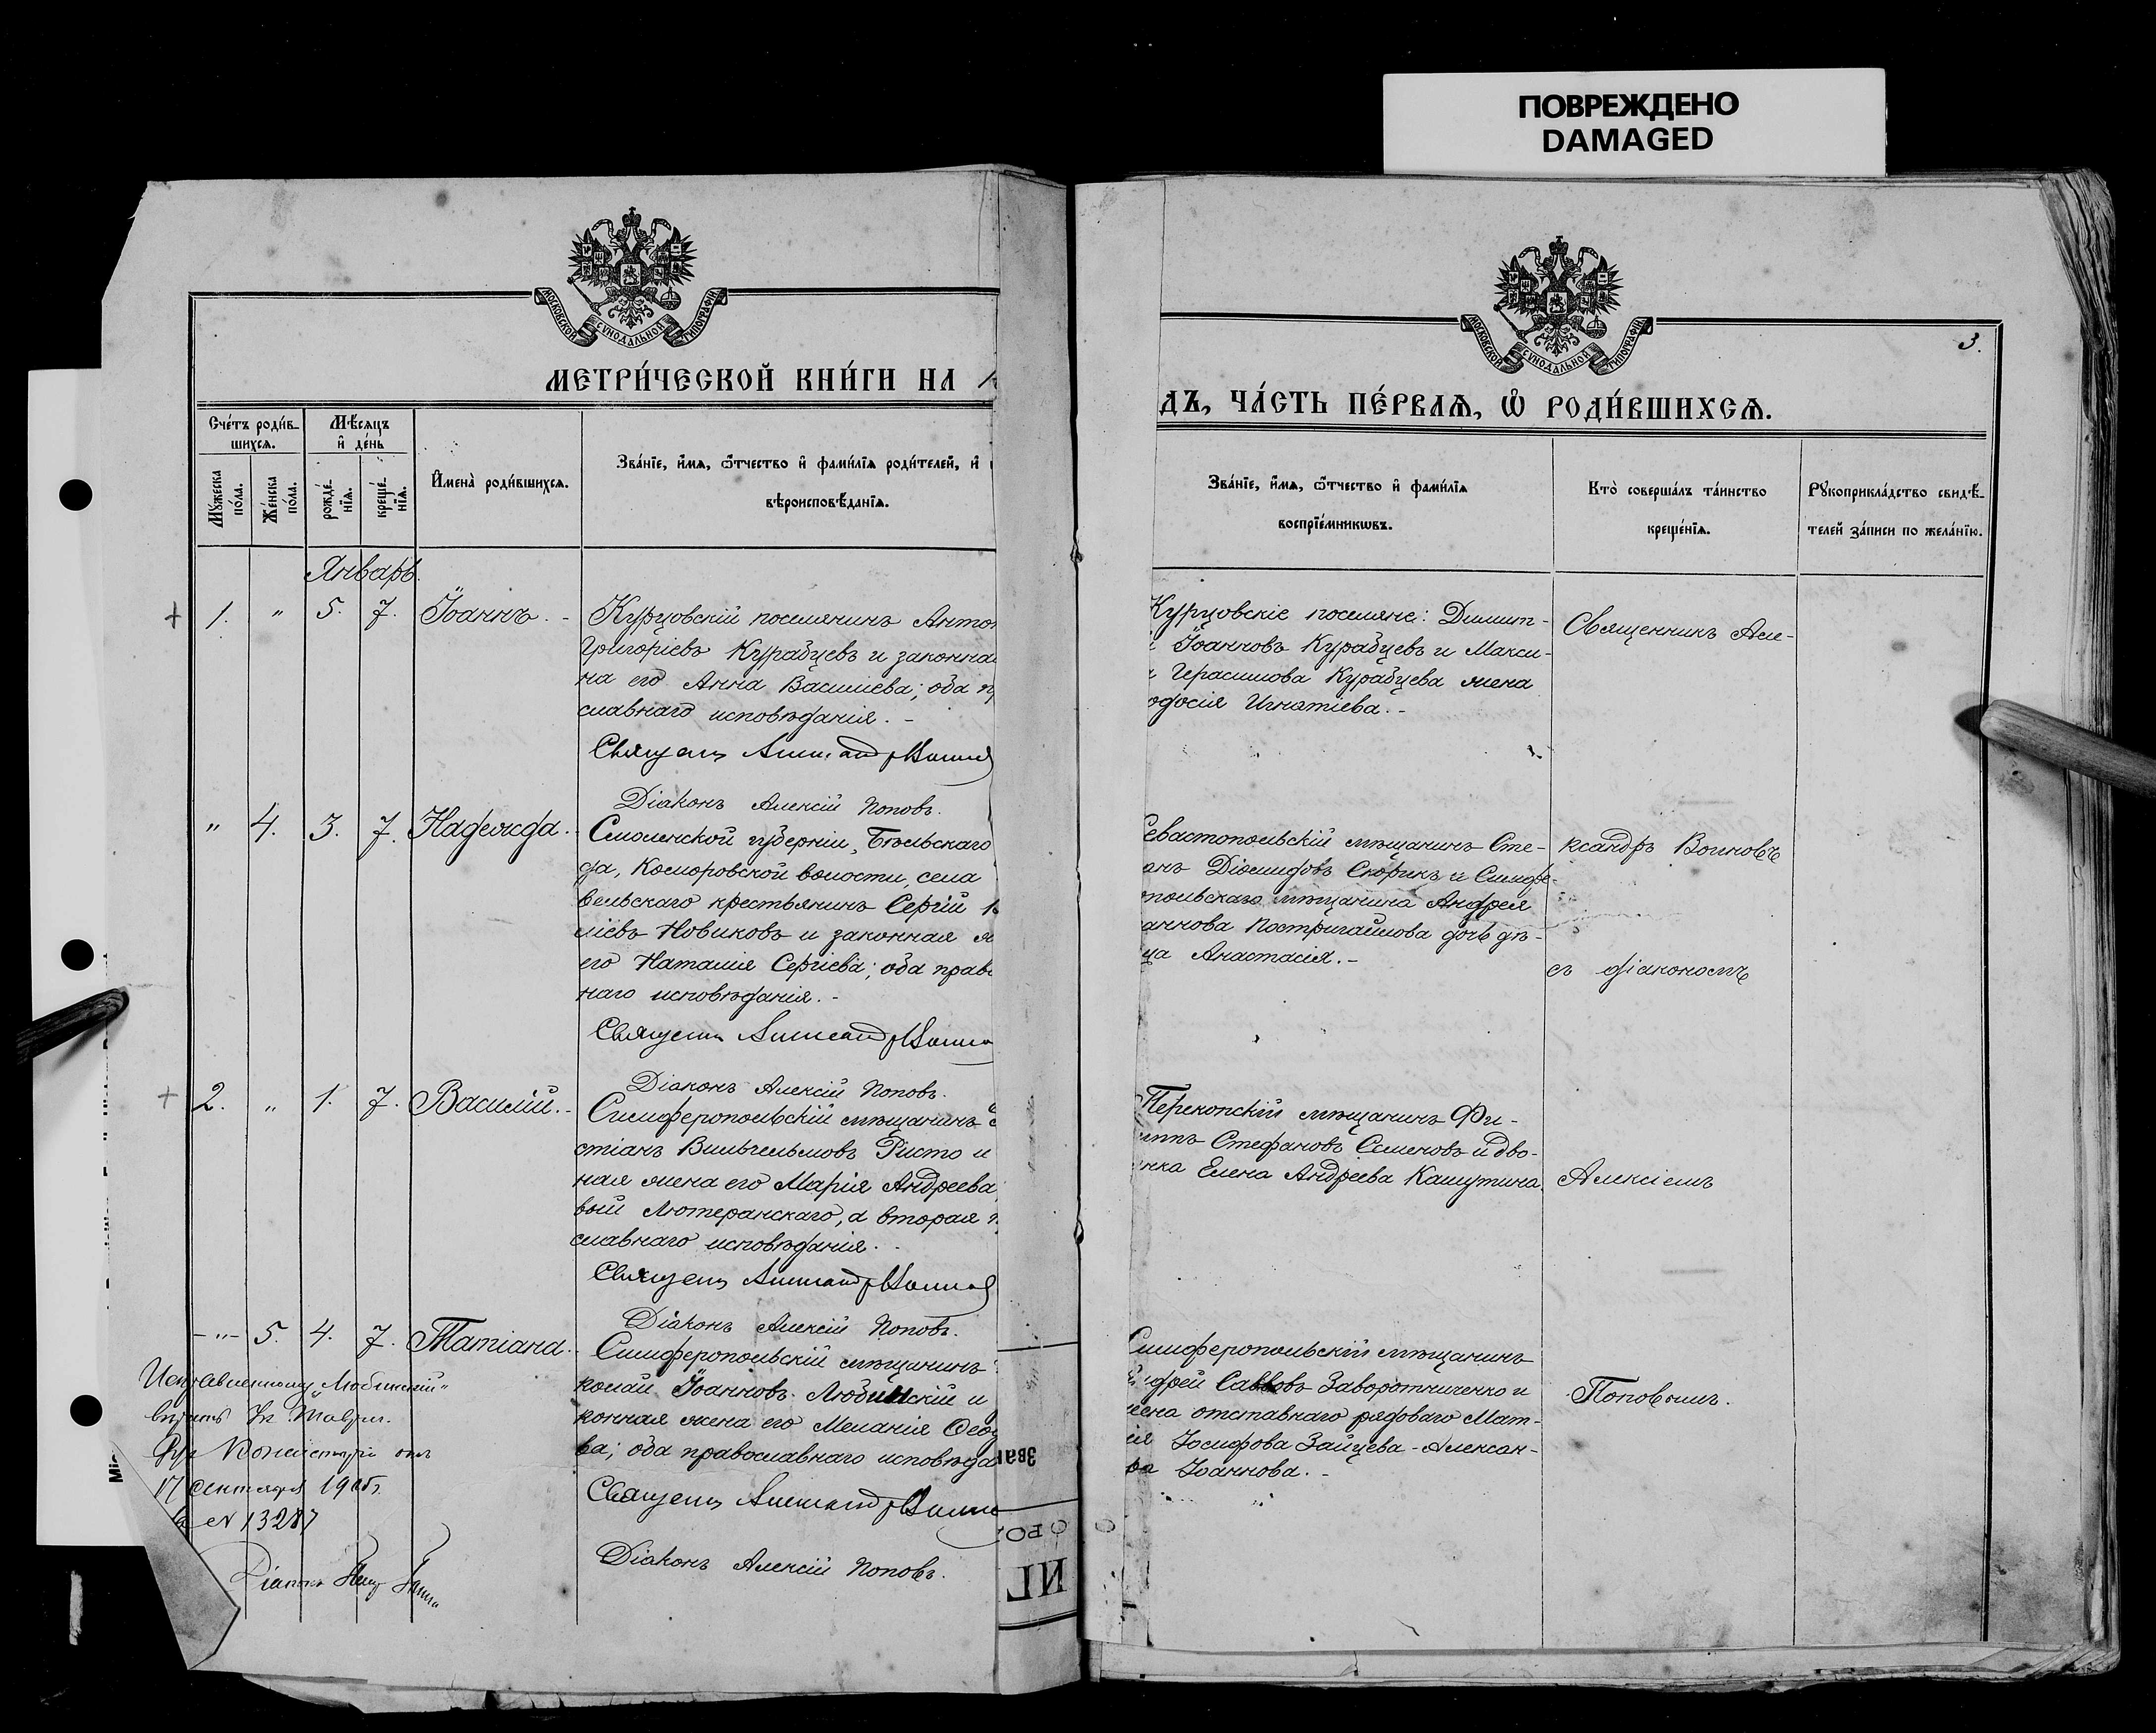 ПОВРЕЖДЕНО
DAMAGED
МОСКОВСКОЙ СѴНОДАЛЬНОЙ ТИПОГРАФІИ
МЕТРИ́ЧЕСКОЙ КНИ́ГИ НА
Сче́тъ роди́в-
шихсѧ.
Мѣ́сяцъ
и҆ де́нь
Му́жеска
по́ла.
Же́нска
по́ла.
рожде́-
нїѧ.
креще́-
нїѧ.
И҆мена̀ роди́вшихсѧ.
Зва́нїе, и҆́мѧ, ѻ҆́тчество и҆ фами́лїѧ роди́телей, и҆
вѣроисповѣ́данїѧ.
Январь.
1. " 5. 7. Іоаннъ. -
Курцовскій поселянинъ Анто
Григоріевъ Курабцевъ и законна
на его Анна Васильева; оба п
славнаго исповѣданія. -
Діаконъ Алексій Поповъ.
" 4. 3. 7. Надежда. -
Смоленской губерніи, Бѣльскаго
да, Коморовской волости, села
вельскаго крестьянинъ Сергій
ліевъ Новиковъ и законная
его Наталія Сергіева; оба прав
наго исповѣданія. -
Діаконъ Алексій Поповъ.
2. " 1. 7. Василій. -
Симферопольскій мѣщанинъ
стіанъ Вильгельмовъ Ристо и
ная жена его Марія Андреева
вый Лютеранскаго, а вторая п
славнаго исповѣданія. -
Діаконъ Алексій Поповъ.
-"- 5. 4. 7. Татіана. -
Симферопольскій мѣщанинъ
колай Іоанновъ Любинскій и
конная жена его Меланія Ѳео
ва; оба православнаго исповѣда
Діаконъ Алексій Поповъ.
Исправленному „Любинскій"
17 Сентября 190
№ 13287
Діаконъ
МОСКОВСКОЙ СѴНОДАЛЬНОЙ ТИПОГРАФІИ
3.
дъ, ЧА́СТЬ ПЕ́РВАѦ, Ѡ҆ РОДИ́ВШИХСѦ.
Зва́нїе, и҆́мѧ, ѻ҆́тчество и҆ фами́лїѧ
воспрїе́мниковъ.
Кто̀ соверша́лъ та́инство
креще́нїѧ.
Рꙋкоприкла́дство свидѣ́-
телей за́писи по жела́нїю.
Курцовскіе поселяне: Димит-
Іоанновъ Курабцевъ и Макси-
Герасимова Курабцева жена
одосія Игнатіева. -
Священникъ Але-
Севастопольскій мѣщанинъ Сте-
анъ Діомидовъ Скоринъ и Симфе-
польскаго мѣщанина Андрея
аннова Постригайлова дочь дѣ-
ца Анастасія. -
ксандръ Войновъ
съ діакономъ
Перекопскій мѣщанинъ Фи-
ппъ Стефановъ Семеновъ и дво-
нка Елена Андреева Кашутина
Алексіемъ
Симферопольскій мѣщанинъ
дрей Савовъ Заворотниченко и
жена отставнаго рядоваго Мат-
Іосифова Зайцева - Алексан-
ра Іоаннова. -
Поповымъ.